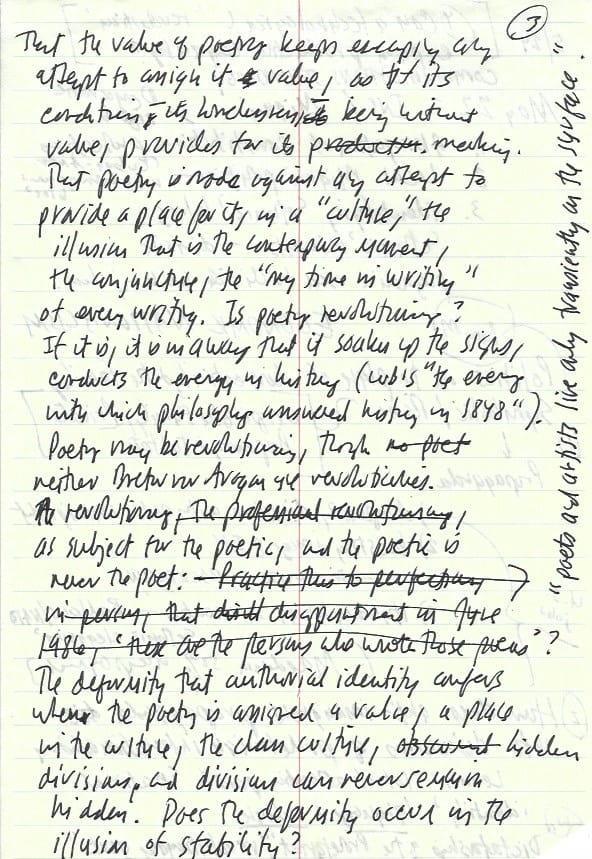 3
That the value of poetry keeps escaping any
attempt to assign it a value, as if its
condition, its being without
value, provides for its production meaning.
That poetry is made against any attempt to
provide a place for it, in a "culture," the
illusion that is the contemporary moment,
the conjuncture, the "my time in writing"
of every writing. Is poetry revolutionary?
If it is, it is in a way that it soaks up the signs,
conducts the energy in history ("the energy
with which philosophy answered history in 1848").
Poetry may be revolutionary, though no poet
neither Breton nor Aragon are revolutionaries.
A revolutionary, the professional revolutionary,
as subject for the poetic, and the poetic is
never the poet: Practice this to perfection
in person, that disappointment in June
1986, "these are the persons who wrote those poems"?
The deformity that authorial identity confers
when the poetry is assigned a value, a place
in the culture, the class culture, obscured hidden
division, "and division can never remain
hidden." Does the deformity occur in the
illusion of stability?
"poets and artists live only transiently on the surface."